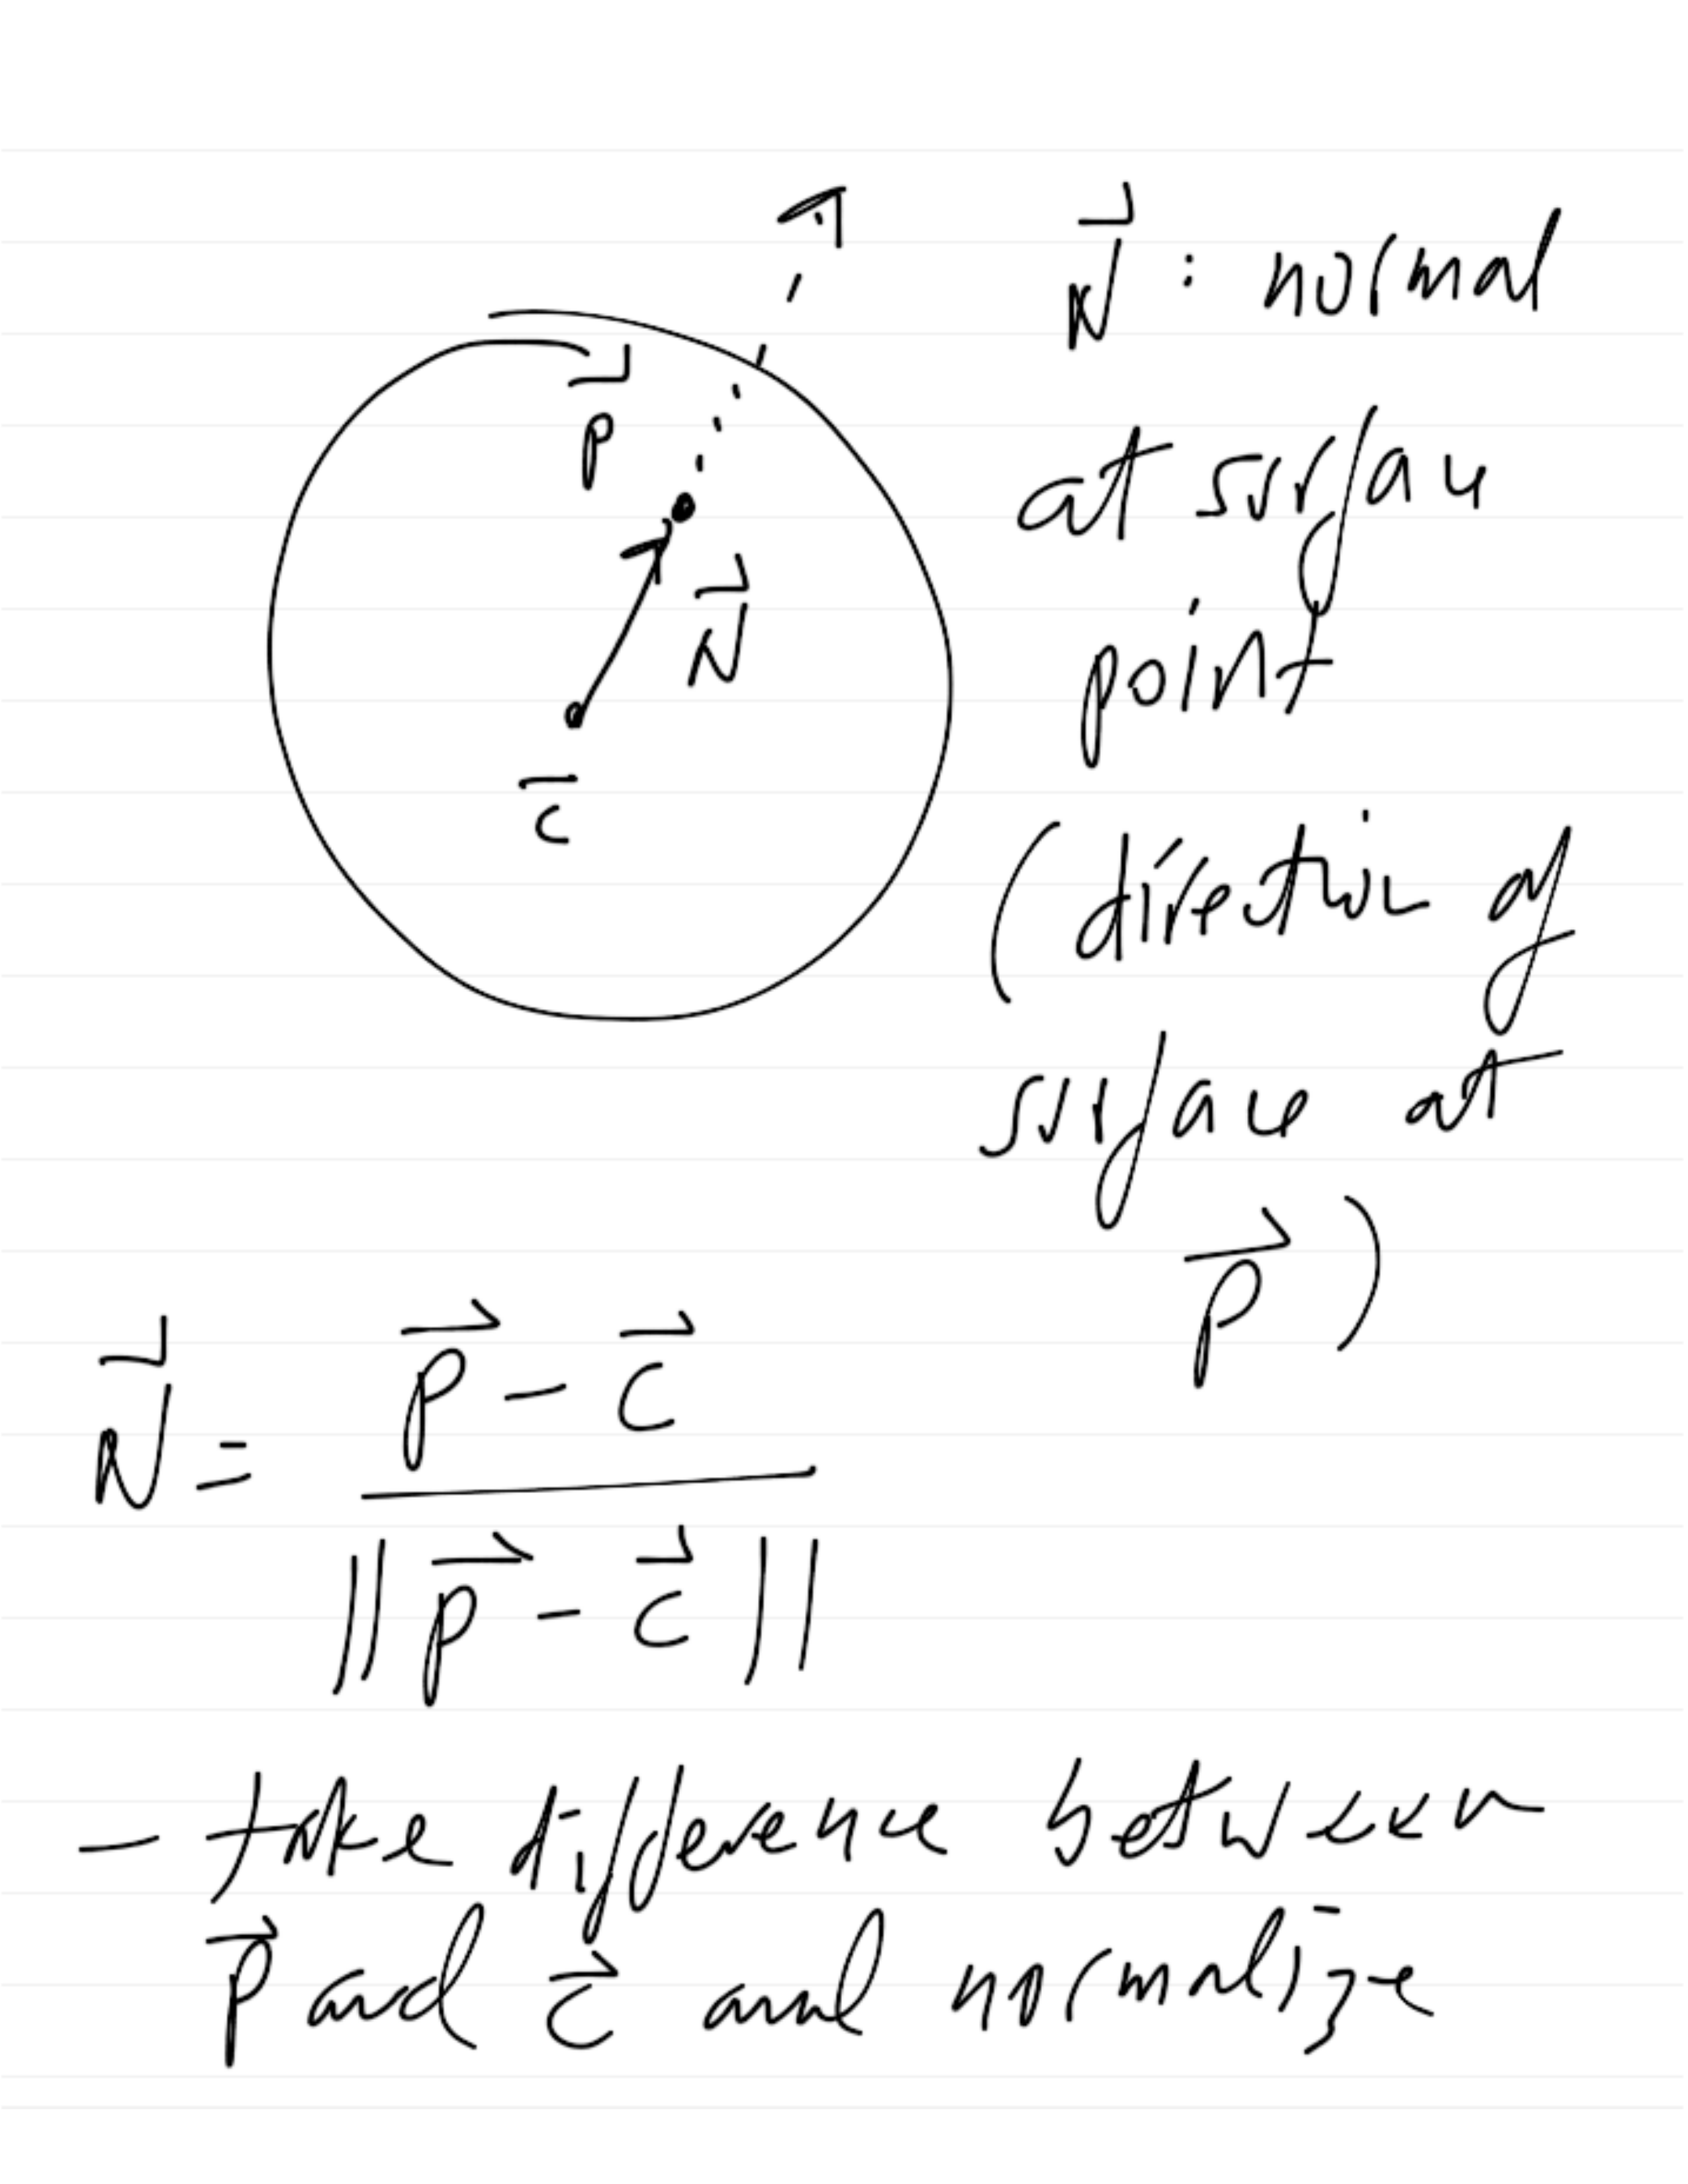 N⃗ : normal
at surface
point
(direction of
surface at
p⃗)
p⃗
N⃗
c⃗
N⃗ = (p⃗ - c⃗) / ||p⃗ - c⃗||
- take difference between
p⃗ and c⃗ and normalize